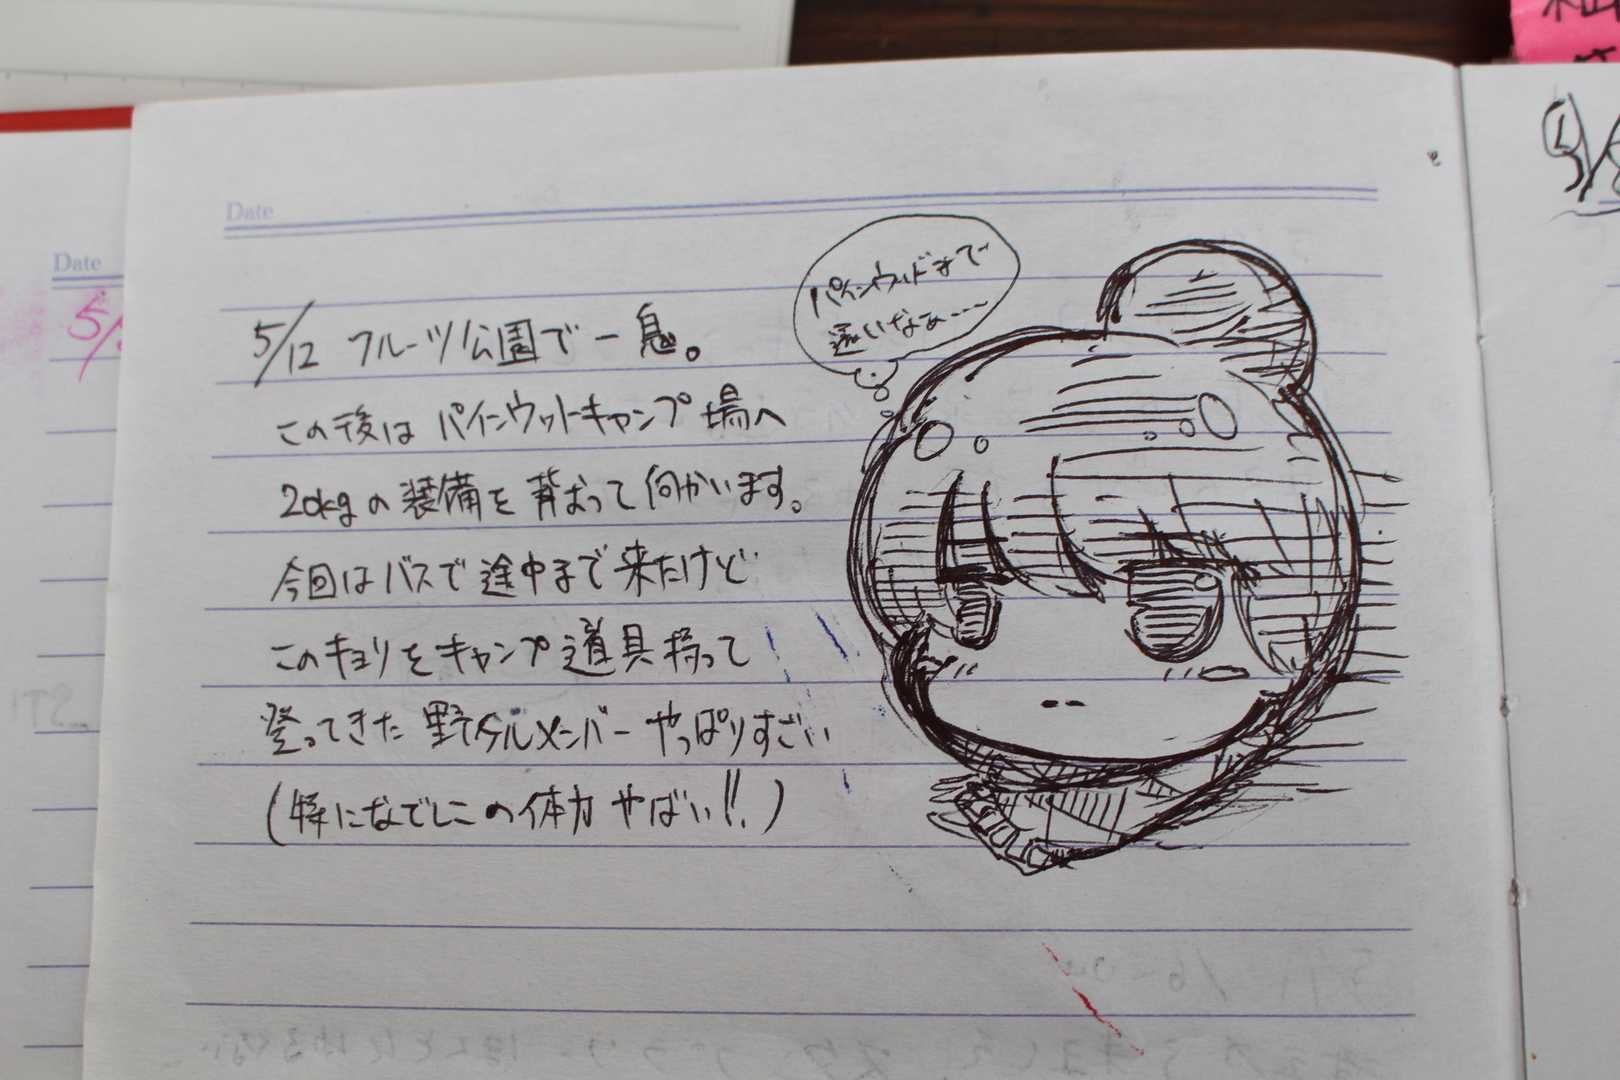 Date
Date
5/
5/12 フルーツ公園で一息。
この後は パインウットキャンプ場へ
20kgの装備を背おって向かいます。
今回はバスで途中まで来たけど
このキョリをキャンプ道具持って
登ってきた野クルメンバーやっぱりすごい
(特になでしこの体力やばい!!)
パインウッドまで
遠いなぁ…